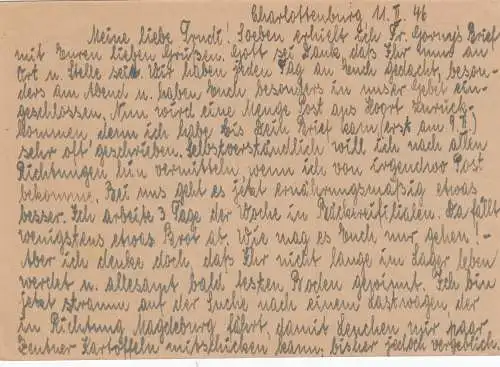 Charlottenburg 11. II. 46
Meine liebe Trudi! Soeben erhielt ich Fr. Brief
mit Euren lieben Grüßen. Gott sei Dank, daß Ihr nun an
Ort u. Stelle seid. Wir haben jeden Tag an Euch gedacht, beson-
ders am Abend u. haben Euch besonders in unser Gebet ein-
geschlossen. Nun wird eine Menge Post aus zurück-
kommen, denn ich habe bis Dein Brief kam (erst am 9. II.)
sehr oft geschrieben. Selbstverständlich will ich nach allen
Richtungen hin vermitteln wenn ich von irgendwo Post
bekomme. Bei uns geht es jetzt ernährungsmäßig etwas
besser. Ich arbeite 3 Tage der Woche in Bäckereifilialen. Da fällt
wenigstens etwas Brot ab. Wie mag es Euch nur gehen!
Aber ich denke doch, daß Ihr nicht lange im Lager leben
werdet u. allesamt bald festen Boden gewinnt. Ich bin
jetzt stramm auf der Suche nach einem Lastwagen der
in Richtung Magdeburg fährt, damit Lenchen mir paar
Zentner Kartoffeln mitschicken kann, bisher jedoch vergeblich.